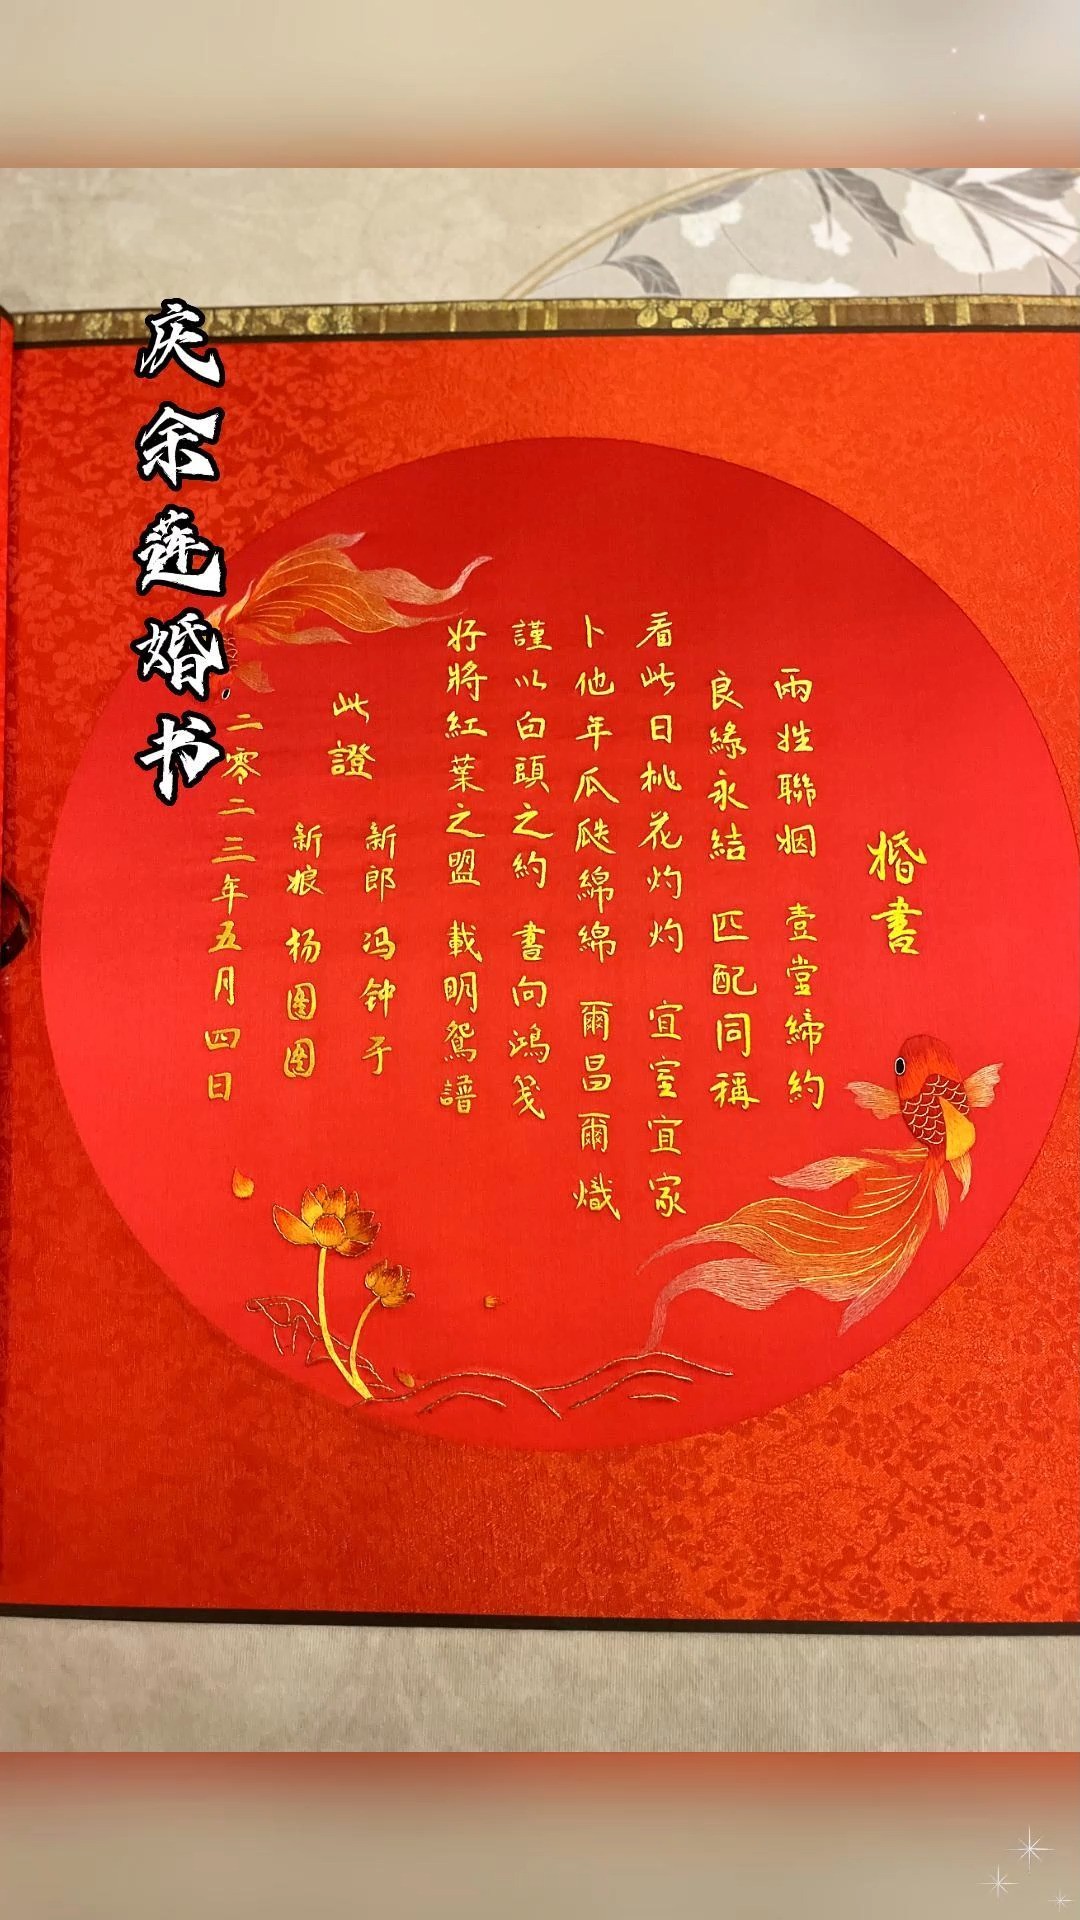 庆余莲婚书
婚書
兩姓聯姻 壹堂締約
良緣永結 匹配同稱
看此日桃花灼灼 宜室宜家
卜他年瓜瓞綿綿 爾昌爾熾
謹以白頭之約 書向鴻箋
好將紅葉之盟 載明鴛譜
此證
新郎 冯钟于
新娘 杨圆圆
二零二三年五月四日